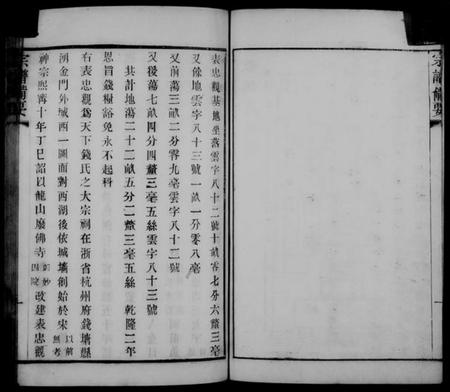 宗譜備要
表忠觀基地坐落雲字八十二號十畝零七分六釐三毫
又餘地雲字八十三號一畝一分零八毫
又前蕩三畝二分零九毫雲字八十二號
又後蕩七畝四分四釐三毫五絲雲字八十三號
共計地蕩二十二畝五分二釐三毫五絲 乾隆二年
恩旨錢糧豁免永不起科
右表忠觀為天下錢氏之大宗祠在浙省杭州府錢塘縣
湧金門外城西一圖面對西湖後依城墻創始於宋以前無考
神宗熙寧十年丁巳詔以龍山廢佛寺妙因院改建表忠觀
宗譜備要